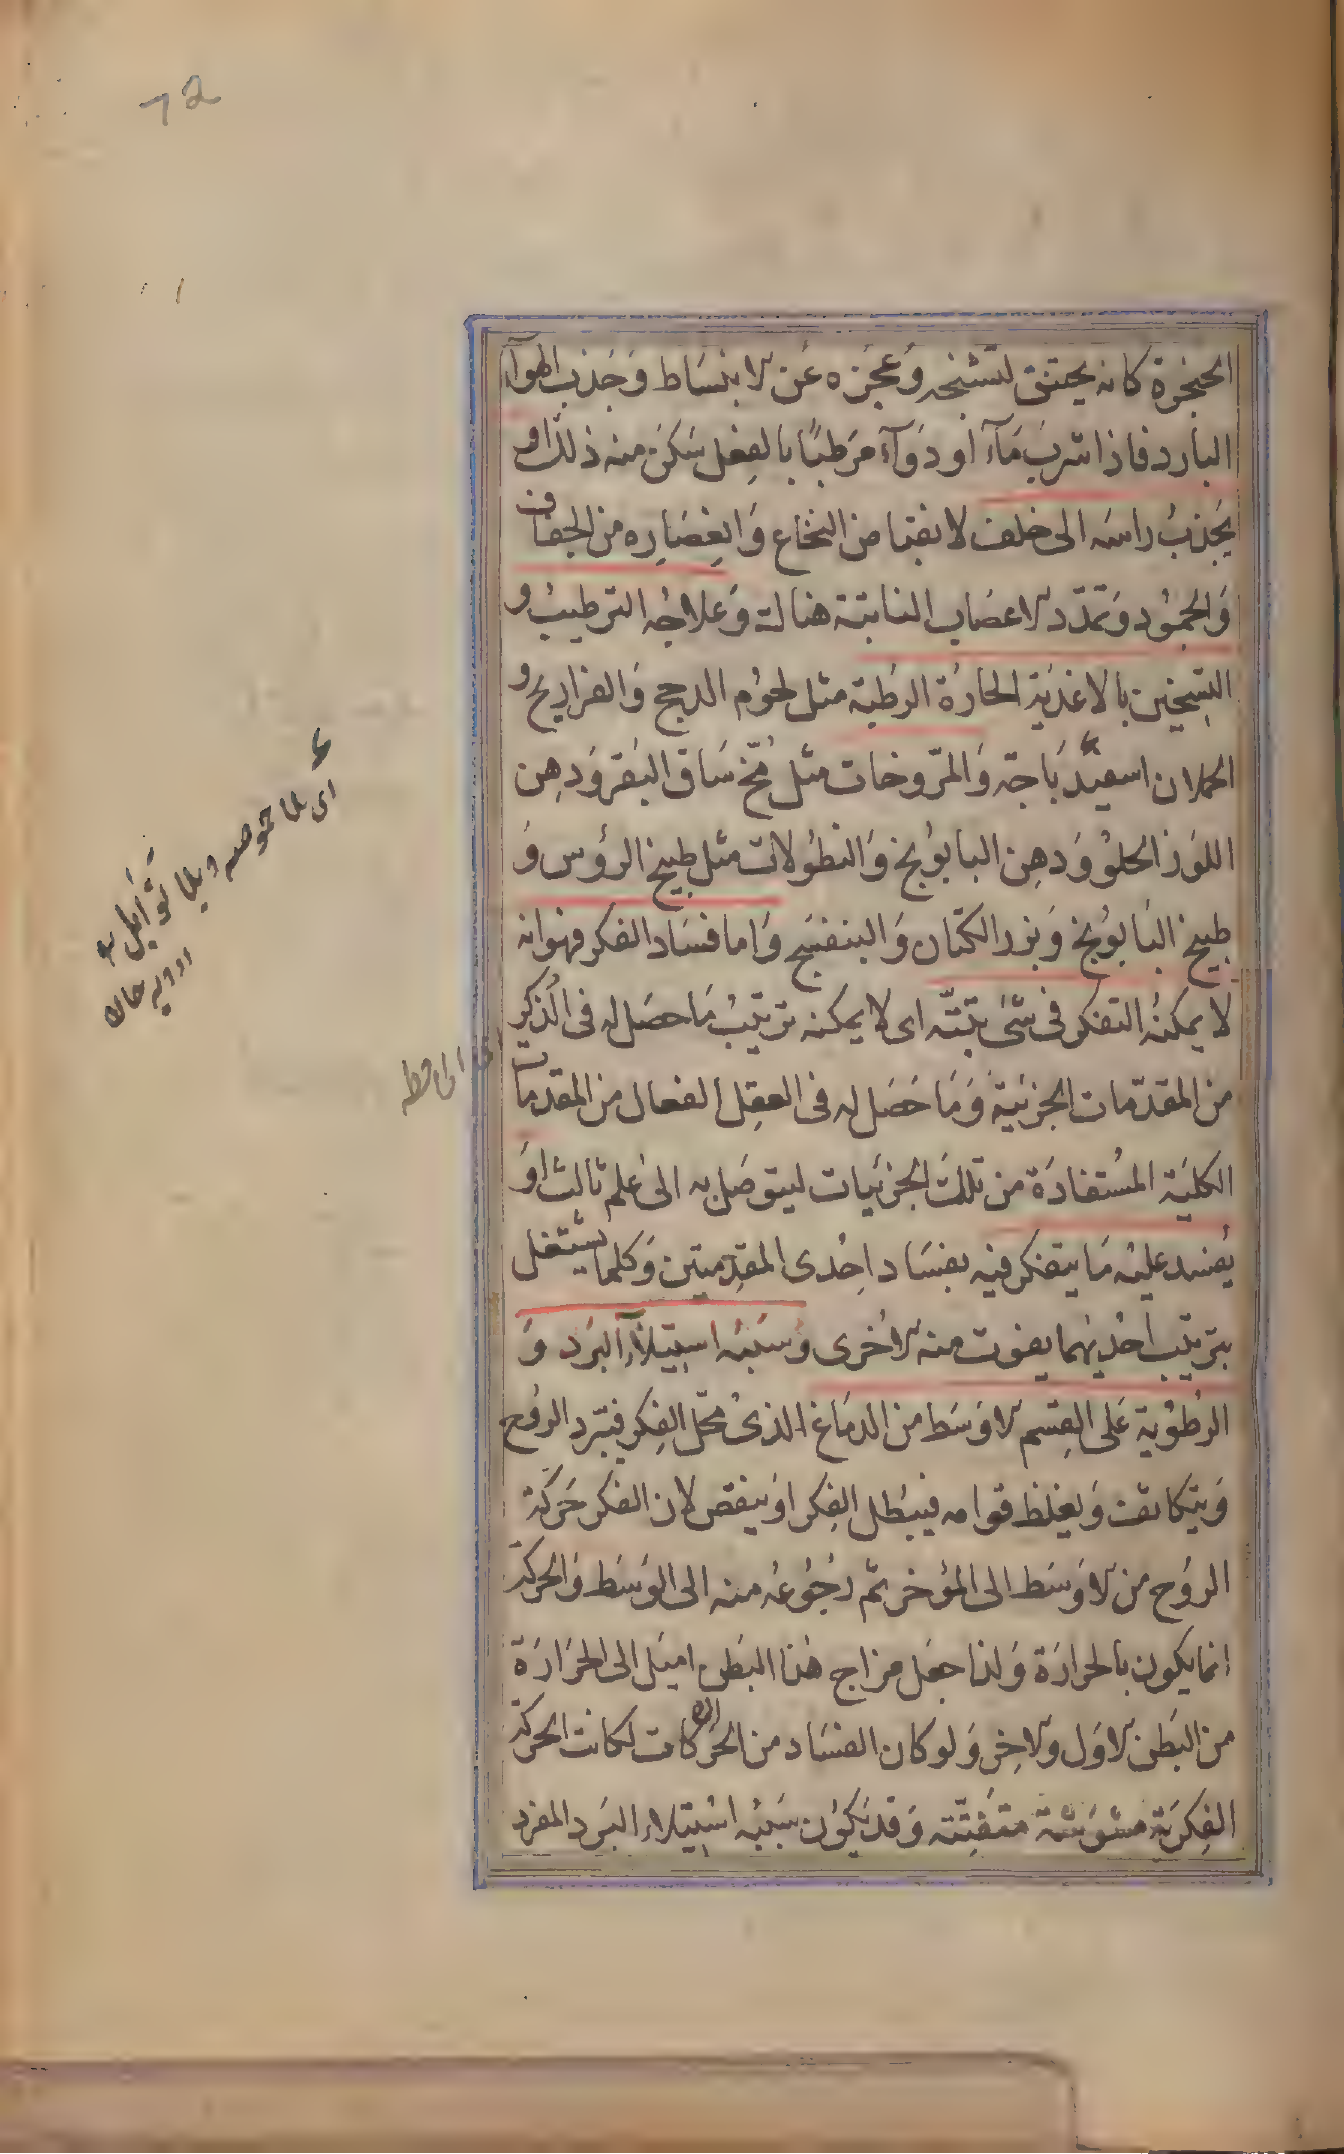 72
الحنجرة كانه يختنق لتشنجه وعجزه عن الانبساط وجذب الهوآء
البارد فاذا شرب مآء او دوآء مرطبًا بالفعل سكن منه ذلك او
يجذب راسه الى خلف لانقباض النخاع وانعصاره من الجفاف
والجمود وتمدّد الاعصاب النابتة هناك وعلاجه الترطيب و
التسخين بالاغذية الحارة الرطبة مثل لحوم الدجج والفراريج و
الحملان اسفيدباجة والمروخات مثل مخ ساق البقر ودهن
اللوز الحلو ودهن البابونج والنطولات مثل طبيخ الرؤس و
طبيخ البابونج وبزر الكتان والبنفسج واما فساد الفكر فهو انه
لا يمكنه التفكر فى شئ بتّه اى لا يمكنه ترتيب ما حصل له فى الذكر
من المقدّمات الجزئية وما حصل له فى العقل الفعال من المقدمات
الكلية المستفادة من تلك الجزئيات ليتوصل به الى علم ثالث او
يفسد عليه ما يتفكر فيه بفساد احدى المقدمتين وكلما يشتغل
بترتيب احديهما يفوت منه الاخرى وسببه استيلآء البرد و
الرطوبة على القسم الاوسط من الدماغ الذى محل الفكر فيبرد الروح
ويتكاثف ويغلظ قوامه فيبطل الفكر او ينقص لان الفكر حركة
الروح من الاوسط الى المؤخر ثم رجوعه منه الى الوسط والحركة
انما يكون بالحرارة ولذا جعل مزاج هذا البطن اميل الى الحرارة
من البطن الاول والاخر ولو كان الفساد من الحركات لكانت الحركة
الفكرية مشوشة متفننة وقد يكون سببه استيلاء البرد المفرد
اى بلا حموضه وبلا توابل
ادويه حاره
اى الحافظه